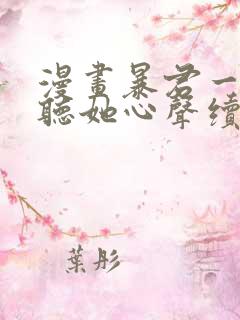 漫畫暴君一
聽她心聲續
葉彤